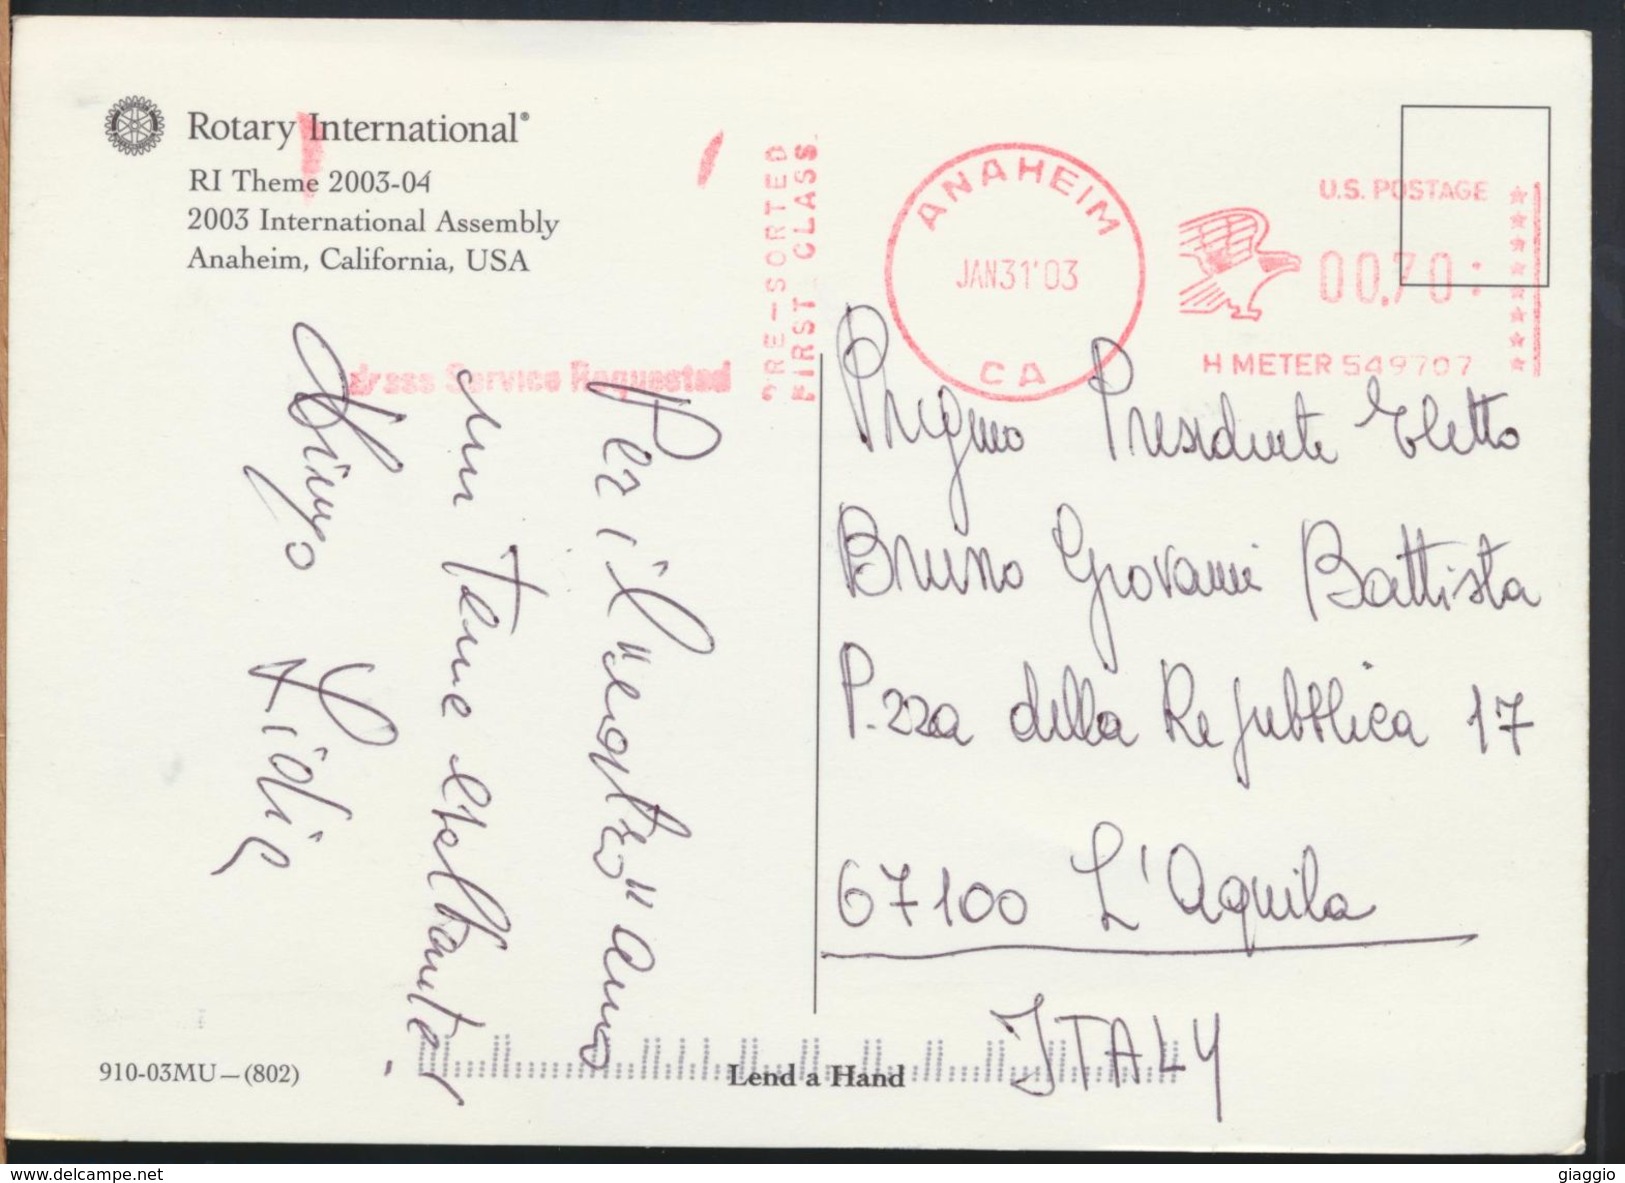 Rotary International®
RI Theme 2003-04
2003 International Assembly
Anaheim, California, USA
PRE-SORTED
FIRST CLASS
ANAHEIM
JAN31'03
CA
U.S. POSTAGE
00.70
H METER 549707
Address Service Requested
Per il "nostro" anno
un tema esaltante!
Lidia
Pregmo Presidente Eletto
Bruno Giovanni Battista
P.zza della Repubblica 17
67100 L'Aquila
ITALY
910-03MU—(802)
Lend a Hand
www.delcampe.net
giaggio